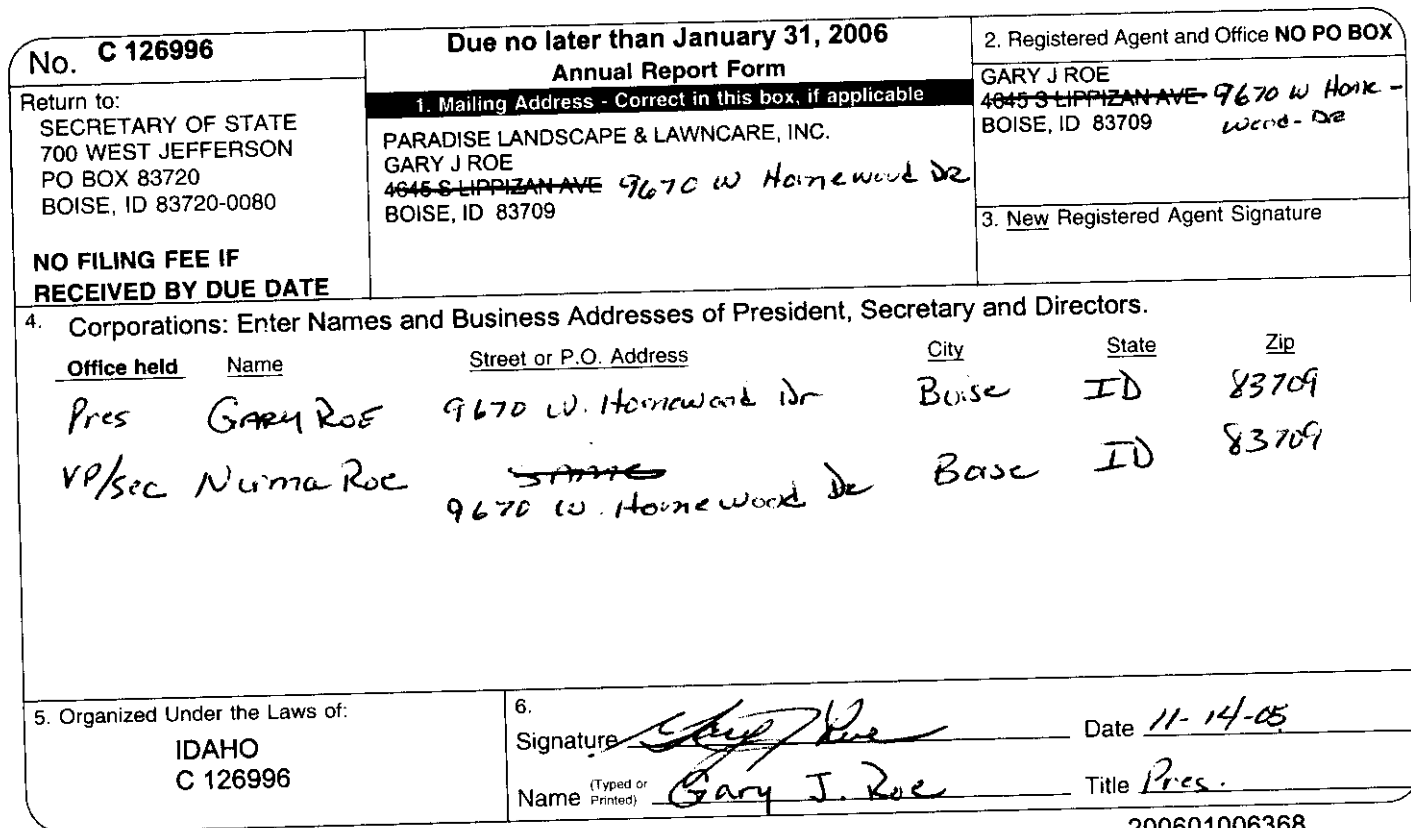 No. C 126996
Return to:
SECRETARY OF STATE
700 WEST JEFFERSON
PO BOX 83720
BOISE, ID 83720-0080
NO FILING FEE IF
RECEIVED BY DUE DATE
Due no later than January 31, 2006
Annual Report Form
1. Mailing Address - Correct in this box, if applicable
PARADISE LANDSCAPE & LAWNCARE, INC.
GARY J ROE
4645 S LIPPIZAN AVE 9670 W Homewood DR
BOISE, ID 83709
2. Registered Agent and Office NO PO BOX
GARY J ROE
4645 S LIPPIZAN AVE 9670 W Home-
BOISE, ID 83709 wood- DR
3. New Registered Agent Signature
4. Corporations: Enter Names and Business Addresses of President, Secretary and Directors.
Office held Name Street or P.O. Address City State Zip
Pres GARY ROE 9670 W. Homewood Dr Boise ID 83709
VP/Sec Roe SAME Boise ID 83709
9670 W. Homewood Dr
5. Organized Under the Laws of:
IDAHO
C 126996
6.
Signature Gary J Roe Date 11-14-05
Name (Typed or Printed) Gary J. Roe Title Pres.
200601006368